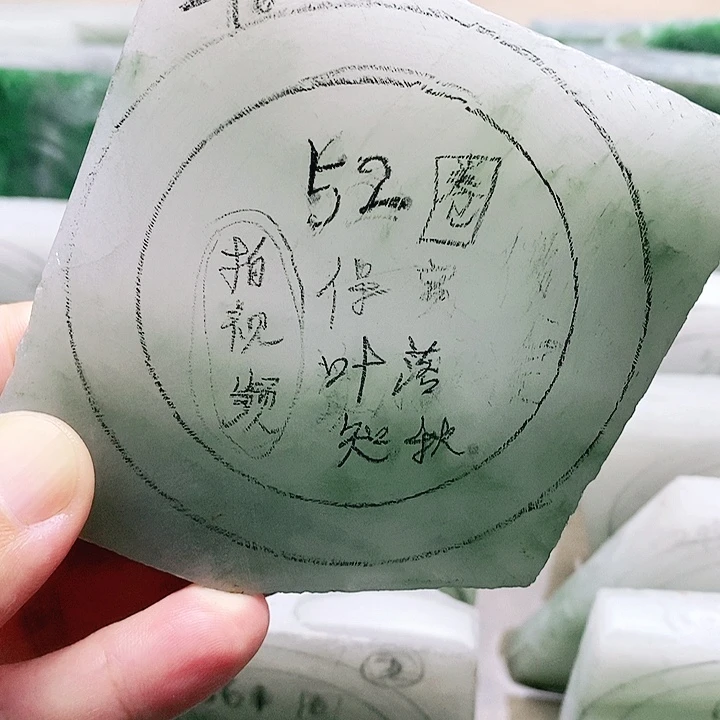 52圈
拍视频
叶落
知秋